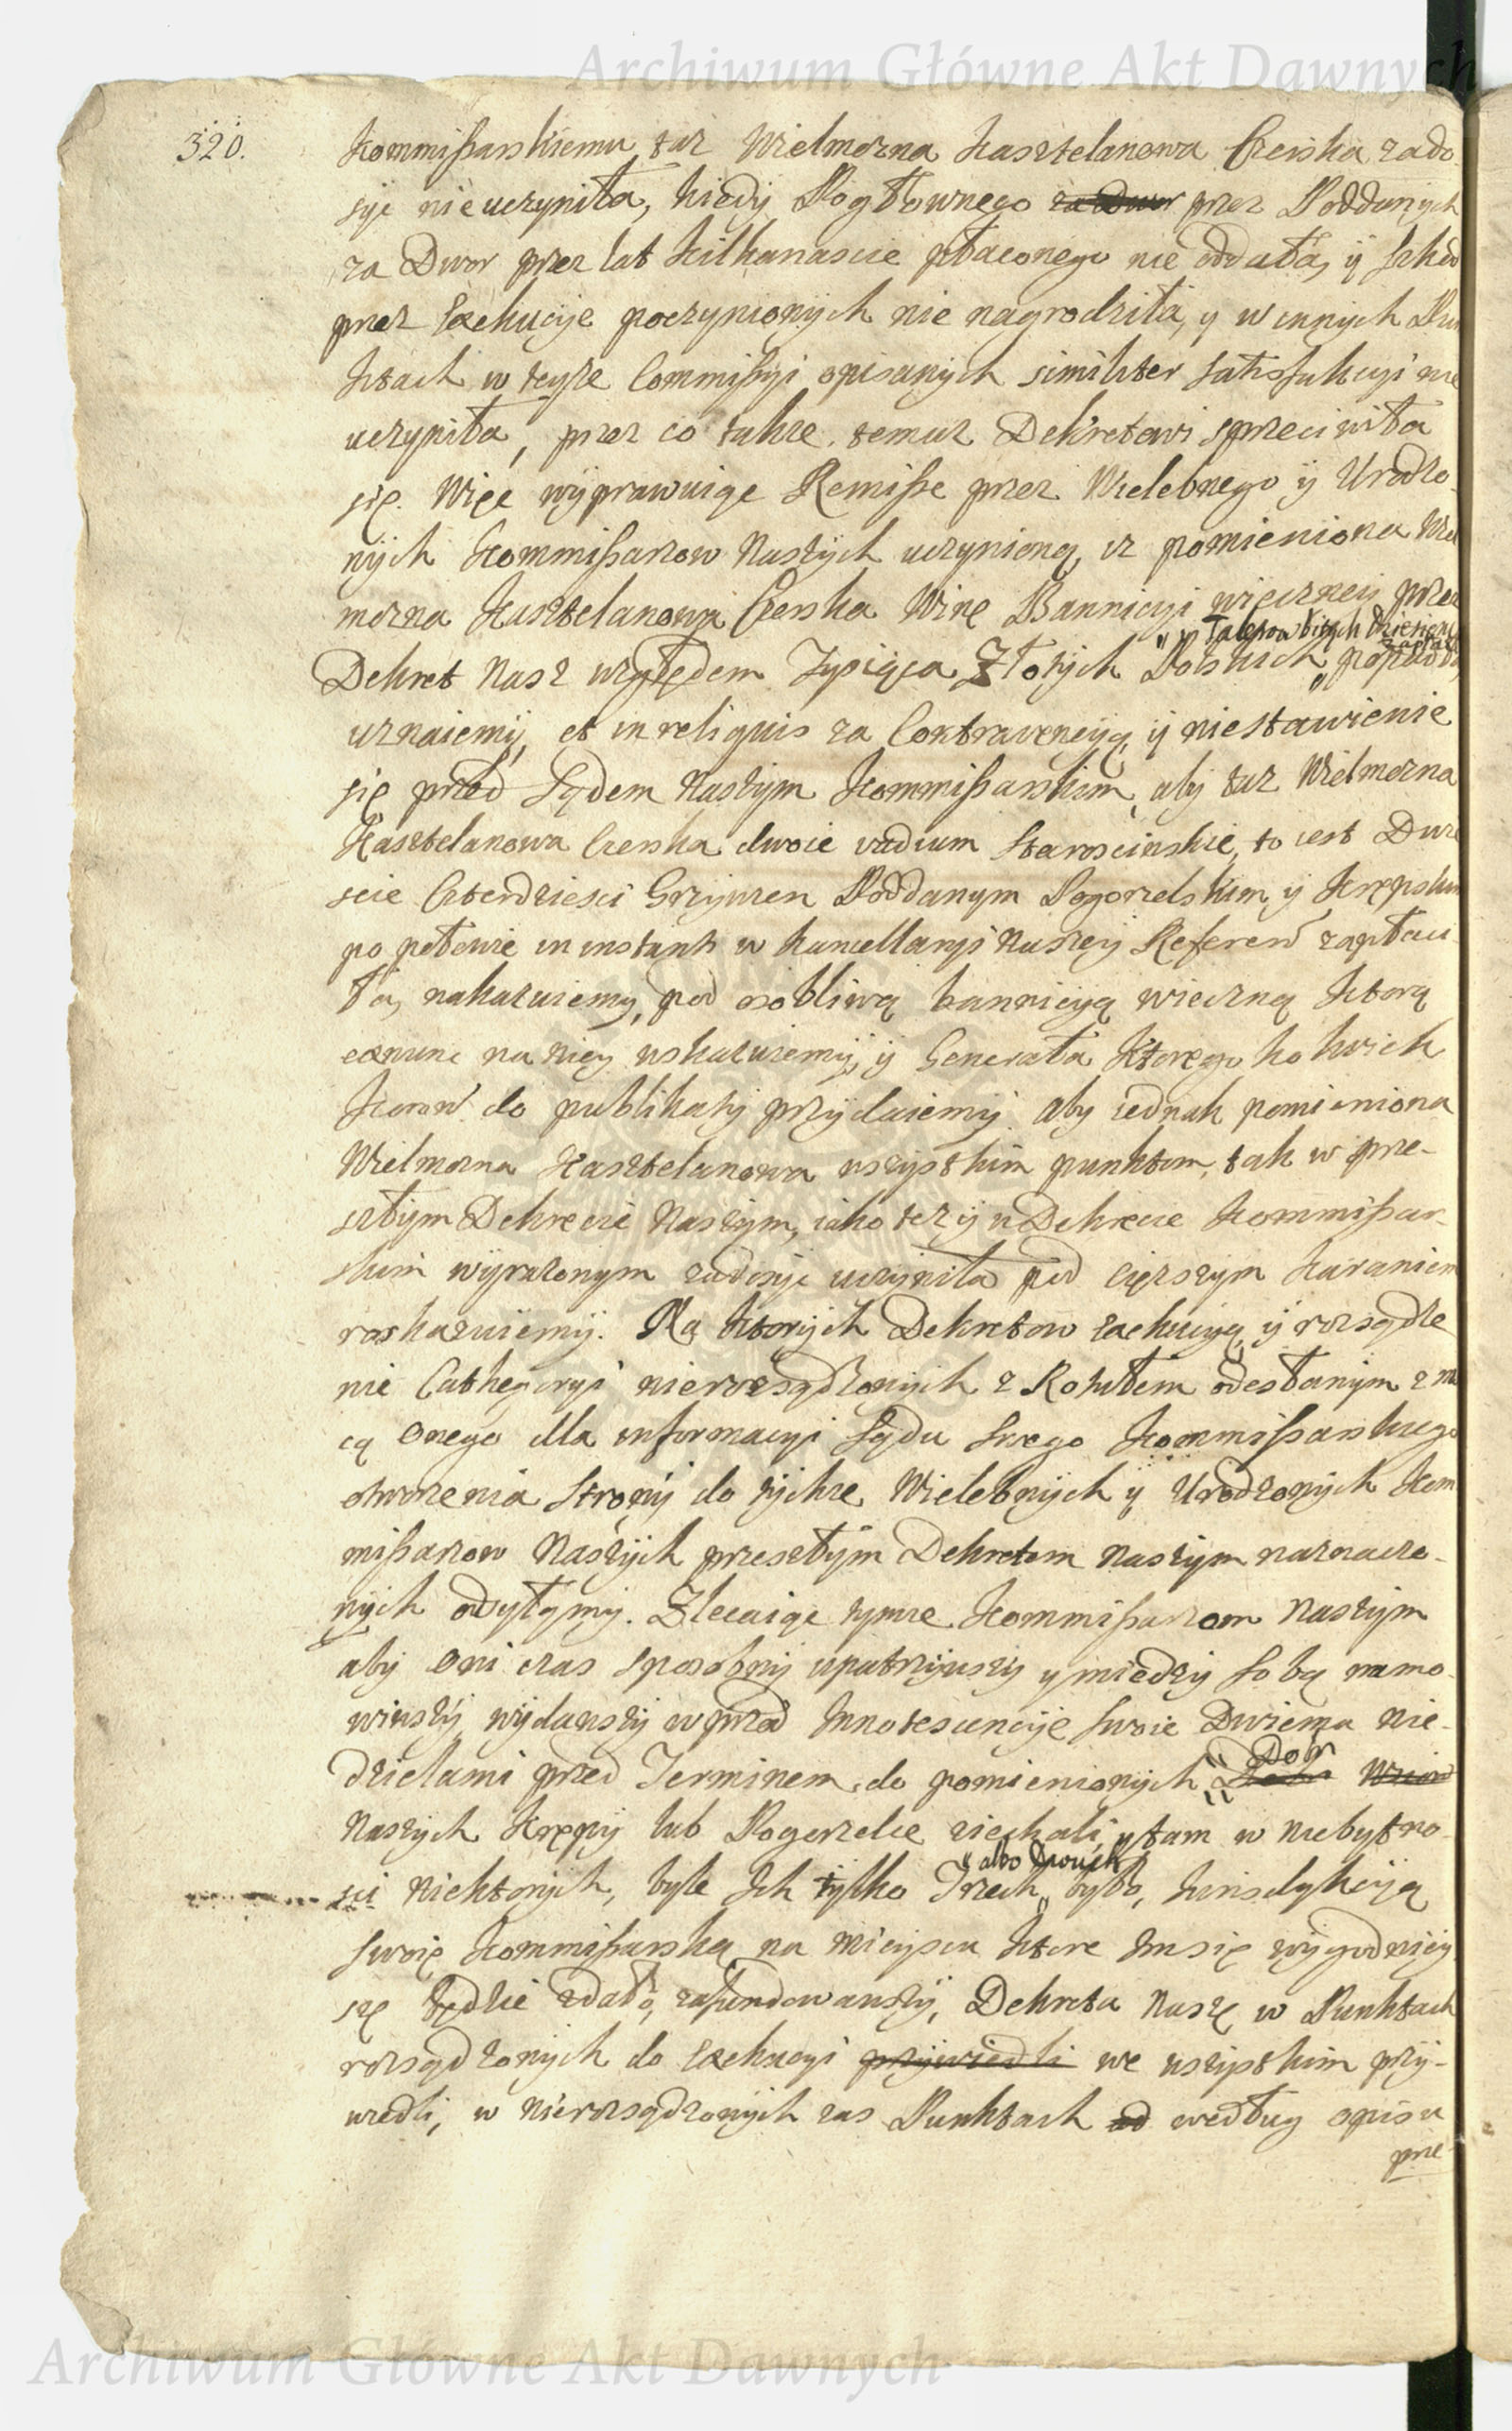 Archiwum Główne Akt Dawnych
320.
Kommißarskiemu taz Wielmozna Kasztelanowa Czerska zado-
syc nie uczyniła, kiedy Pogłownego za Dwor przez Poddanych
za Dwor przez lat kilkanascie płaconego nie oddała, y szkod
przez Exekucyie poczynionych nie nagrodziła, y w innych Pun
ktach w teyze Commißyi opisanych similiter satisfakcyi nie
uczyniła, przez co takze temuz Dekretowi sprzeciwiła
się. Więc wyprawuiąc Remiße przez Wielebnego y Urodzo-
nych Kommißarzow Naszych uczynioną, iz pomieniona Wiel
mozna Kasztelanowa Czerska Winę Bannicyi wieczney przez
„w Talerow bitych
Dekret Nasz względem Tysiąca Złotych Polskich „ popadła
uznaiemy, et in reliquis za Contravencyą y niestawienie
się przed Sądem Naszym Kommißarskim, aby taz Wielmozna
Kasztelanowa Czerska dwoie vadium Staroscinskie, to iest Dwie
scie Czterdziesci Grzywien Poddanym Pogorzelskim y Krępskim
po połowie in instanti w Kancellaryi Naszey Referen zapłaci-
ła, nakazuiemy, pod osobliwą bannicyą wieczną ktorą
exnunc na niey wskazuiemy, y Generała ktorego kolwiek
Koron do publikaty przydaiemy. aby iednak pomieniona
Wielmozna Kasztelanowa wszystkim punktom, tak w prze-
szłym Dekrecie Naszym, iako tez y w Dekrecie Kommißar-
skim wyrazonym zadosyc uczyniła pod cięzszym karaniem
roskazuiemy. Na ktorych Dekretow exekucyą y rozsądze
nie Cathegoryi nierozsądzonych z Rotułem odesłanym z mo
cą onego dla informacyi Sądu swego Kommißarskiego
otworzenia Strony do tychze Wielebnych y Urodzonych Kom
mißarzow Naszych przeszłym Dekretem Naszym naznaczo-
nych odsyłamy. Zlecaiąc tymze Kommißarzom Naszym
aby oni czas sposobny upatrzywszy y miedzy sobą namo-
wiwszy wydawszy wprzod Innotescencyie swoie Dwiema nie-
dzielami przed Terminem, do pomienionych „ Dobr
Naszych Krępy lub Pogorzelce ziechali, y tam w niebytno-
„ albo Dwoch
sci niektorych, byle Ich tylko Trzech „ było, Jurisdykcyą
swoię Kommißarską na mieyscu ktore im się wygodniey
szę będzie zdało, zafundowawszy, Dekreta Nasze w Punktach
rozsądzonych do Exekucyi przywiedli we wszystkim przy-
wiedli, w nierozsądzonych zas Punktach od według opisu
prze
Archiwum Główne Akt Dawnych